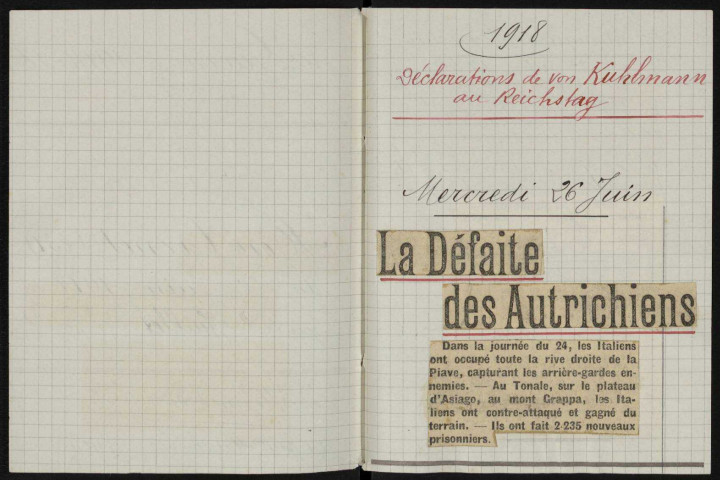 1918
Déclarations de von Kuhlmann
au Reichstag
Mercredi 26 Juin
La Défaite
des Autrichiens
Dans la journée du 24, les Italiens
ont occupé toute la rive droite de la
Piave, capturant les arrière-gardes en-
nemies. — Au Tonale, sur le plateau
d'Asiago, au mont Grappa, les Ita-
liens ont contre-attaqué et gagné du
terrain. — Ils ont fait 2 235 nouveaux
prisonniers.